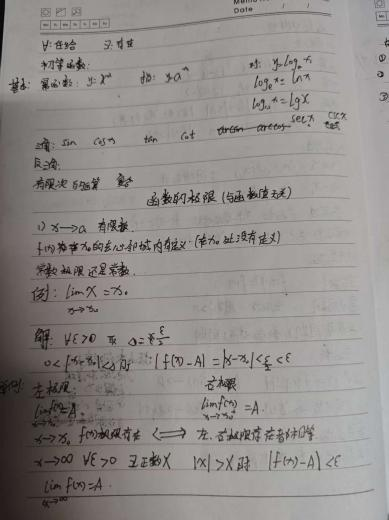 Memo No.
Date
Mo Tu We Th Fr Sa Su
∀: 任给 ∃: 存在
初等函数:
基本: 幂函数: y=xᵃ 指: y=aˣ 对: y=logₐx
logₑx=lnx
log₁₀x=lgx
三角: sin cosx tan cot secx cscx
反三角:
有限次 四则运算 复合
函数的极限 (与函数值无关)
1) x→a 有限数
f(x)在x₀的去心邻域内有定义 (在x₀处没有定义)
常数极限还是常数.
例: lim x = x₀
x→x₀
解: ∀ε>0 取 δ=ε/2
0<|x-x₀|<δ时 |f(x)-A|=|x-x₀|<ε/2<ε
左极限 右极限
lim f(x)=A lim f(x)=A.
x→x₀⁻ x→x₀⁺
x→x₀ f(x)极限存在 ⟺ 左、右极限存在且相等
x→∞ ∀ε>0 ∃正数X |x|>X时 |f(x)-A|<ε
lim f(x)=A
x→∞